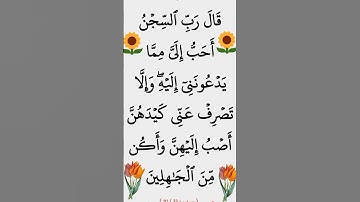 قَالَ رَبِّ ٱلسِّجْنُ
أَحَبُّ إِلَىَّ مِمَّا
يَدْعُونَنِىٓ إِلَيْهِ ۖ وَإِلَّا
تَصْرِفْ عَنِّى كَيْدَهُنَّ
أَصْبُ إِلَيْهِنَّ وَأَكُن
مِّنَ ٱلْجَـٰهِلِينَ